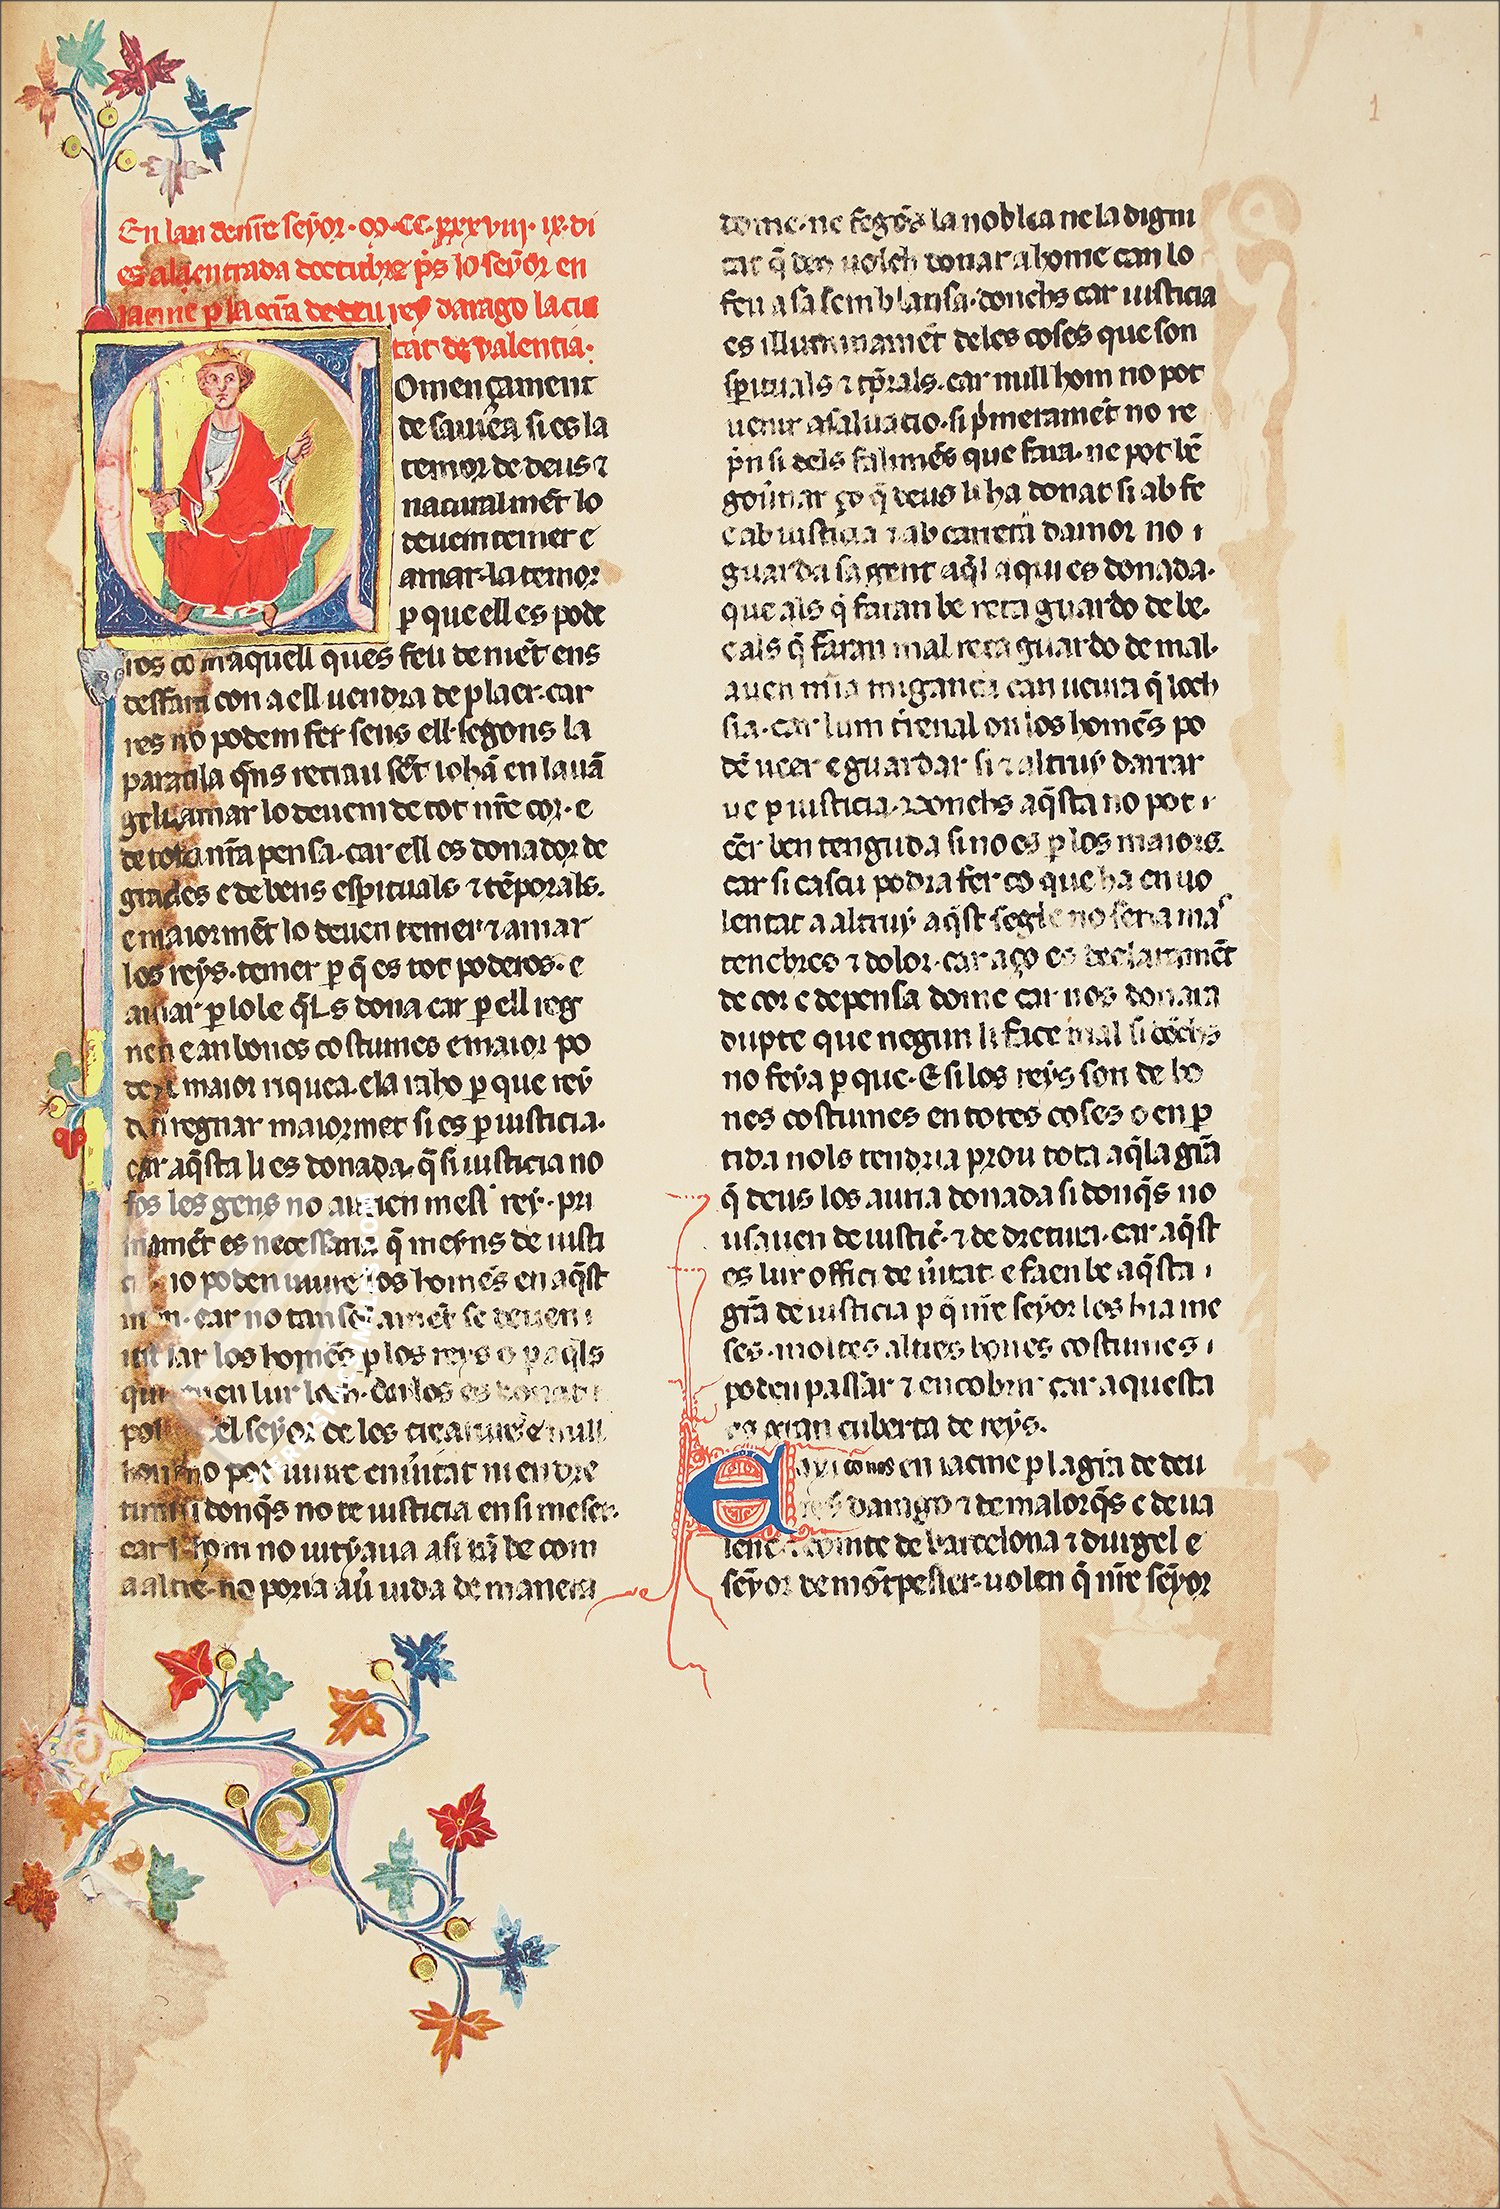 En lan de nr̄e seȳor · M · CC · xxxviii · ix · di
es ala entrada doctubre p̄s lo seȳor en
Jacme p la gr̄a de deu rey darago la ciu
tat de valentia ·
Omençament
de saviea si es la
temor de deus ⁊
naturalmēt lo
devem temer e
amar · la temor
ꝑ que ell es pode
ros com aquell ques feu de niēt ens
desfara con a ell vendra de plaer · car
res no podem fer sens ell · segons la
paraula q̄ns retrau sēt iohā en lavā
geli · amar lo devem de tot nr̄e cor · e
de tota nr̄a pensa · car ell es donador de
gracies e de bens espirituals ⁊ tēporals ·
e maiormēt lo deuen temer ⁊ amar
los reȳs · temer ꝑ q̄ es tot poderos · e
amar ꝑ lo q̄ls dona car ꝑ ell reg
nen e an bones costumes e maior po
der e maior riquea · e la raho ꝑ que reȳ
deu regnar maiormēt si es ꝑ iusticia ·
car aq̄sta li es donada · q̄ si iusticia no
fos les gens no aurien mest̕ reȳ · pri
marnēt es necessaria q̄ meȳns de iusti
cia no poden viure los homēs en aq̄st
mon · car no tan sol amēt se deuen
los homēs ꝑ los reys o ꝑ aq̄ls
qui en lur loch
del seȳor de les creatures e null
hom no pot viure en v̄itat ni en dre
tura si donq̄s no te iusticia en si meseȳ ·
car lhom no viuria asi cū de com
a altre · no poria auer vida de manera
dome · ne segōs la noblea ne la digni
tat q̄ deu volch donar a home can lo
feu a sa semblansa · donchs car iusticia
es illuminamēt deles coses que son
sp̄ituals ⁊ tp̄rals · car null hom no pot
venir a saluatio · si p̄merament no re
p̄n si dels falimēs que faia · ne pot bē
gov̄nar ço q̄ deus li ha donat si ab fe
e ab iusticia ⁊ ab carrera damor no
guarda sa gent aq̄l a qui es donada ·
que als q̄ faran be reta guardo de be ·
e als q̄ faran mal reta guardo de mal ·
can veura q̄ loch
sia · car lum on los homēs po
dē veer e guardar si ⁊ altruȳ
ve ꝑ iusticia · Donchs aq̄sta no pot
ēēr ben tenguda si no es ꝑ los maiors ·
car si cascu podia fer ço que ha en vo
lentat a altruȳ aq̄st segle no seria mas
tenebres ⁊ dolor · car aço es declarament
de cor e de pensa dome car nos donaria
dupte que negun li faes mal si dōchs
no feya ꝑ que · E si los reȳs son de bo
nes costumes en totes coses o en ꝑ
tida nols tendria prou tota aq̄la gr̄a
q̄ deus los auria donada si donq̄s no
usauen de iusticia · ⁊ de dretura · car aq̄st
es lur offici de v̄itat · e faen be aq̄sta
gr̄a de iusticia ꝑ q̄ nr̄e seȳor los hi a me
ses · moltes altres bones costumes
poden passar ⁊ encobrir car aquesta
es gran cuberta de reȳs ·
E en iacme ꝑ la gr̄a de deu
rey darago ⁊ de malorq̄s e de va
lencia comte de barcelona ⁊ durgel e
seȳor de mōtpesler · volen q̄ nr̄e seȳor